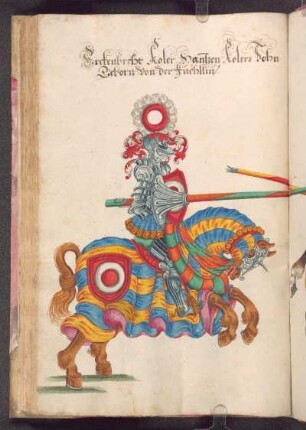 Eckenbrecht Koler Hannsen Kolers Sohn
Geborn von der Füchsllin